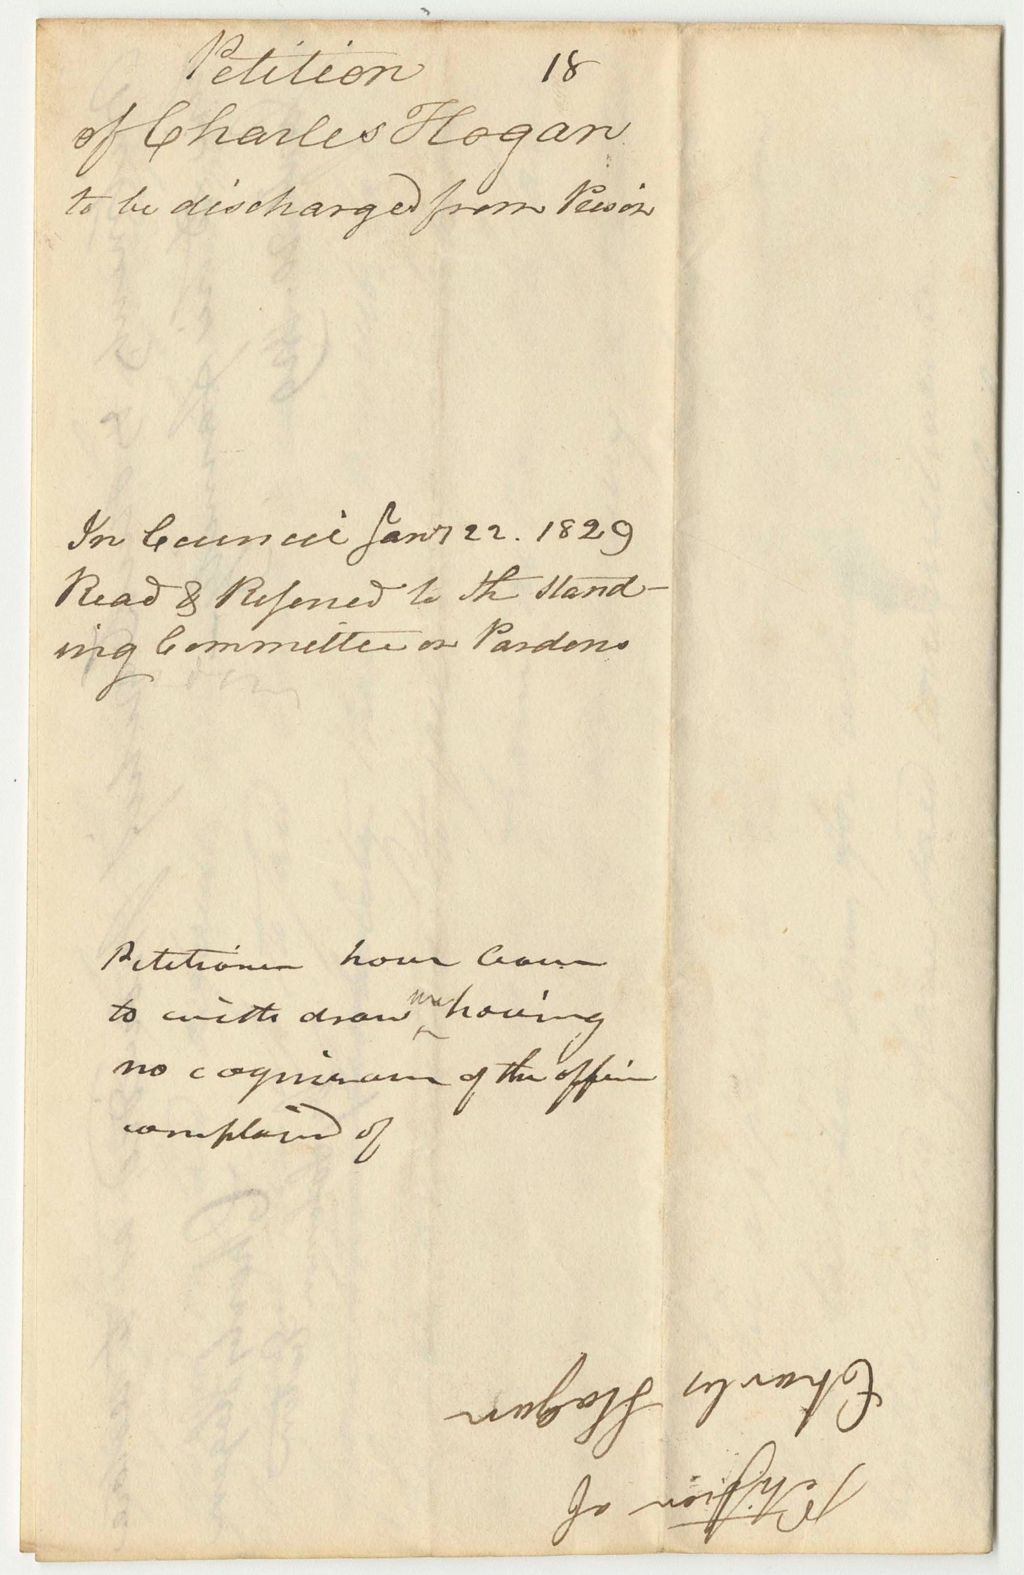 Petition 18
of Charles Hogan
to be discharged from Prison
In Council Jany 22. 1829
Read & Referred to the Stand-
ing Committee on Pardons
Petitioner have leave
to withdraw we having
no cognisance of the offence
complained of
Petition of
Charles Hogan